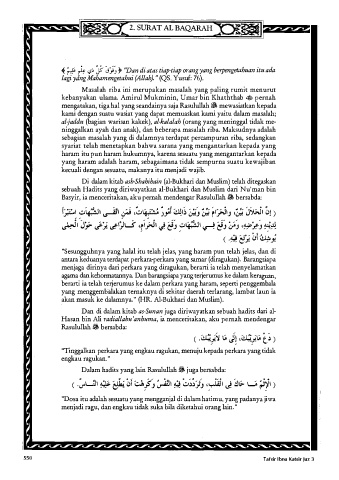 2. SURAT AL BAQARAH
﴿ وَفَوْقَ كُلِّ ذِي عِلْمٍ عَلِيمٌ ﴾ "Dan di atas tiap-tiap orang yang berpengetahuan itu ada
lagi yang Mahamengetahui (Allah)." (QS. Yusuf: 76).
Masalah riba ini merupakan masalah yang paling rumit menurut
kebanyakan ulama. Amirul Mukminin, Umar bin Khaththab pernah
mengatakan, tiga hal yang seandainya saja Rasulullah ﷺ mewasiatkan kepada
kami dengan suatu wasiat yang dapat memuaskan kami yaitu dalam masalah;
al-jaddu (bagian warisan kakek), al-kalalah (orang yang meninggal tidak me-
ninggalkan ayah dan anak), dan beberapa masalah riba. Maksudnya adalah
sebagian masalah yang di dalamnya terdapat percampuran riba, sedangkan
syariat telah menetapkan bahwa sarana yang mengantarkan kepada yang
haram itu pun haram hukumnya, karena sesuatu yang mengantarkan kepada
yang haram adalah haram, sebagaimana tidak sempurna suatu kewajiban
kecuali dengan sesuatu, makanya itu menjadi wajib.
Di dalam kitab ash-Shahihain (al-Bukhari dan Muslim) telah ditegaskan
sebuah Hadits yang diriwayatkan al-Bukhari dan Muslim dari Nu'man bin
Basyir, ia menceritakan, aku pernah mendengar Rasulullah ﷺ bersabda:
( إِنَّ الْحَلَالَ بَيِّنٌ، وَالْحَرَامَ بَيِّنٌ وَبَيْنَ ذَلِكَ أُمُورٌ مُشْتَبِهَاتٌ، فَمَنِ اتَّقَى الشُّبُهَاتِ اسْتَبْرَأَ
لِدِيْنِهِ وَعِرْضِهِ، وَمَنْ وَقَعَ فِي الشُّبُهَاتِ وَقَعَ فِي الْحَرَامِ، كَالرَّاعِي يَرْعَى حَوْلَ الْحِمَى
يُوشِكُ أَنْ يَرْتَعَ فِيْهِ. )
"Sesungguhnya yang halal itu telah jelas, yang haram pun telah jelas, dan di
antara keduanya terdapat perkara-perkara yang samar (diragukan). Barangsiapa
menjaga dirinya dari perkara yang diragukan, berarti ia telah menyelamatkan
agama dan kehormatannya. Dan barangsiapa yang terjerumus ke dalam keraguan,
berarti ia telah terjerumus ke dalam perkara yang haram, seperti penggembala
yang menggembalakan ternaknya di sekitar daerah terlarang, lambat laun ia
akan masuk ke dalamnya." (HR. Al-Bukhari dan Muslim).
Dan di dalam kitab as-Sunan juga diriwayatkan sebuah hadits dari al-
Hasan bin Ali radiallahu'anhuma, ia menceritakan, aku pernah mendengar
Rasulullah ﷺ bersabda:
( دَعْ مَا يَرِيْبُكَ، إِلَى مَا لَا يَرِيْبُكَ. )
"Tinggalkan perkara yang engkau ragukan, menuju kepada perkara yang tidak
engkau ragukan."
Dalam hadits yang lain Rasulullah ﷺ juga bersabda:
( الْإِثْمُ مَا حَاكَ فِي الْقَلْبِ، وَتَرَدَّدَتْ فِيْهِ النَّفْسُ وَكَرِهْتَ أَنْ يَطَّلِعَ عَلَيْهِ النَّاسُ. )
"Dosa itu adalah sesuatu yang mengganjal di dalam hatimu, yang padanya jiwa
menjadi ragu, dan engkau tidak suka bila diketahui orang lain."
556
Tafsir Ibnu Katsir Juz 3